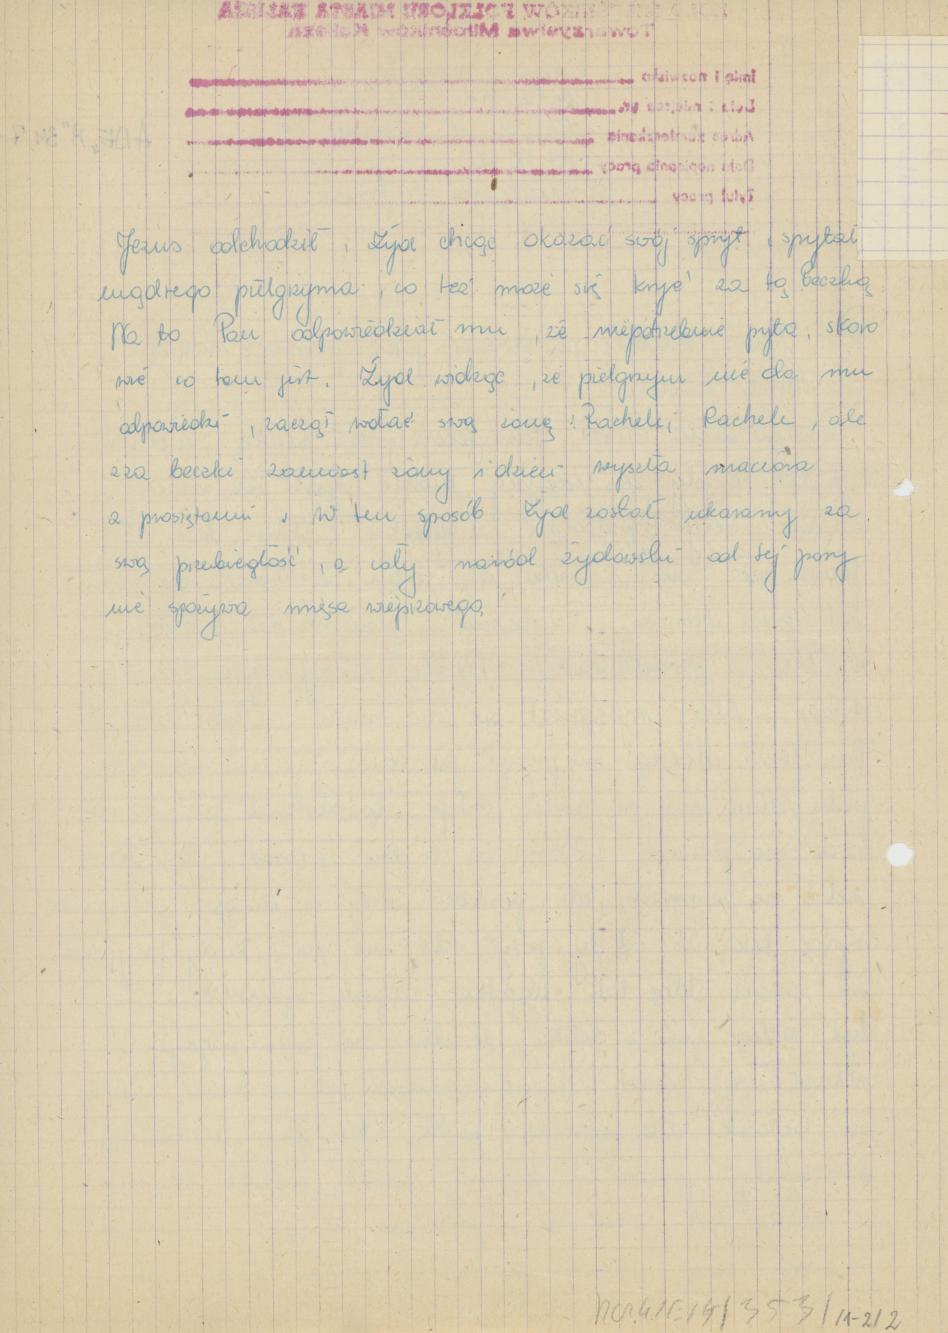 Jezus odchodził, Żyd chcąc okazać swój spryt, spytał
mądrego pielgrzyma, co też może się kryć za tą beczką
Na to Pan odpowiedział mu, że niepotrzebnie pyta, skoro
wie co tam jest. Żyd widząc, że pielgrzym nie da mu
odpowiedzi, zaczął wołać swą żonę: Rachelo, Rachelo, ale
zza beczki zamiast żony i dzieci wyszła maciora
z prosiętami. W ten sposób Żyd został ukarany za
swą przebiegłość, a cały naród żydowski od tej pory
nie spożywa mięsa wieprzowego.
MIASTA KALISZA
Towarzystwa Miłośników Kalisza
Imię i nazwisko
Data i miejsce ur.
Adres zamieszkania
Data napisania pracy
Tytuł pracy
353/